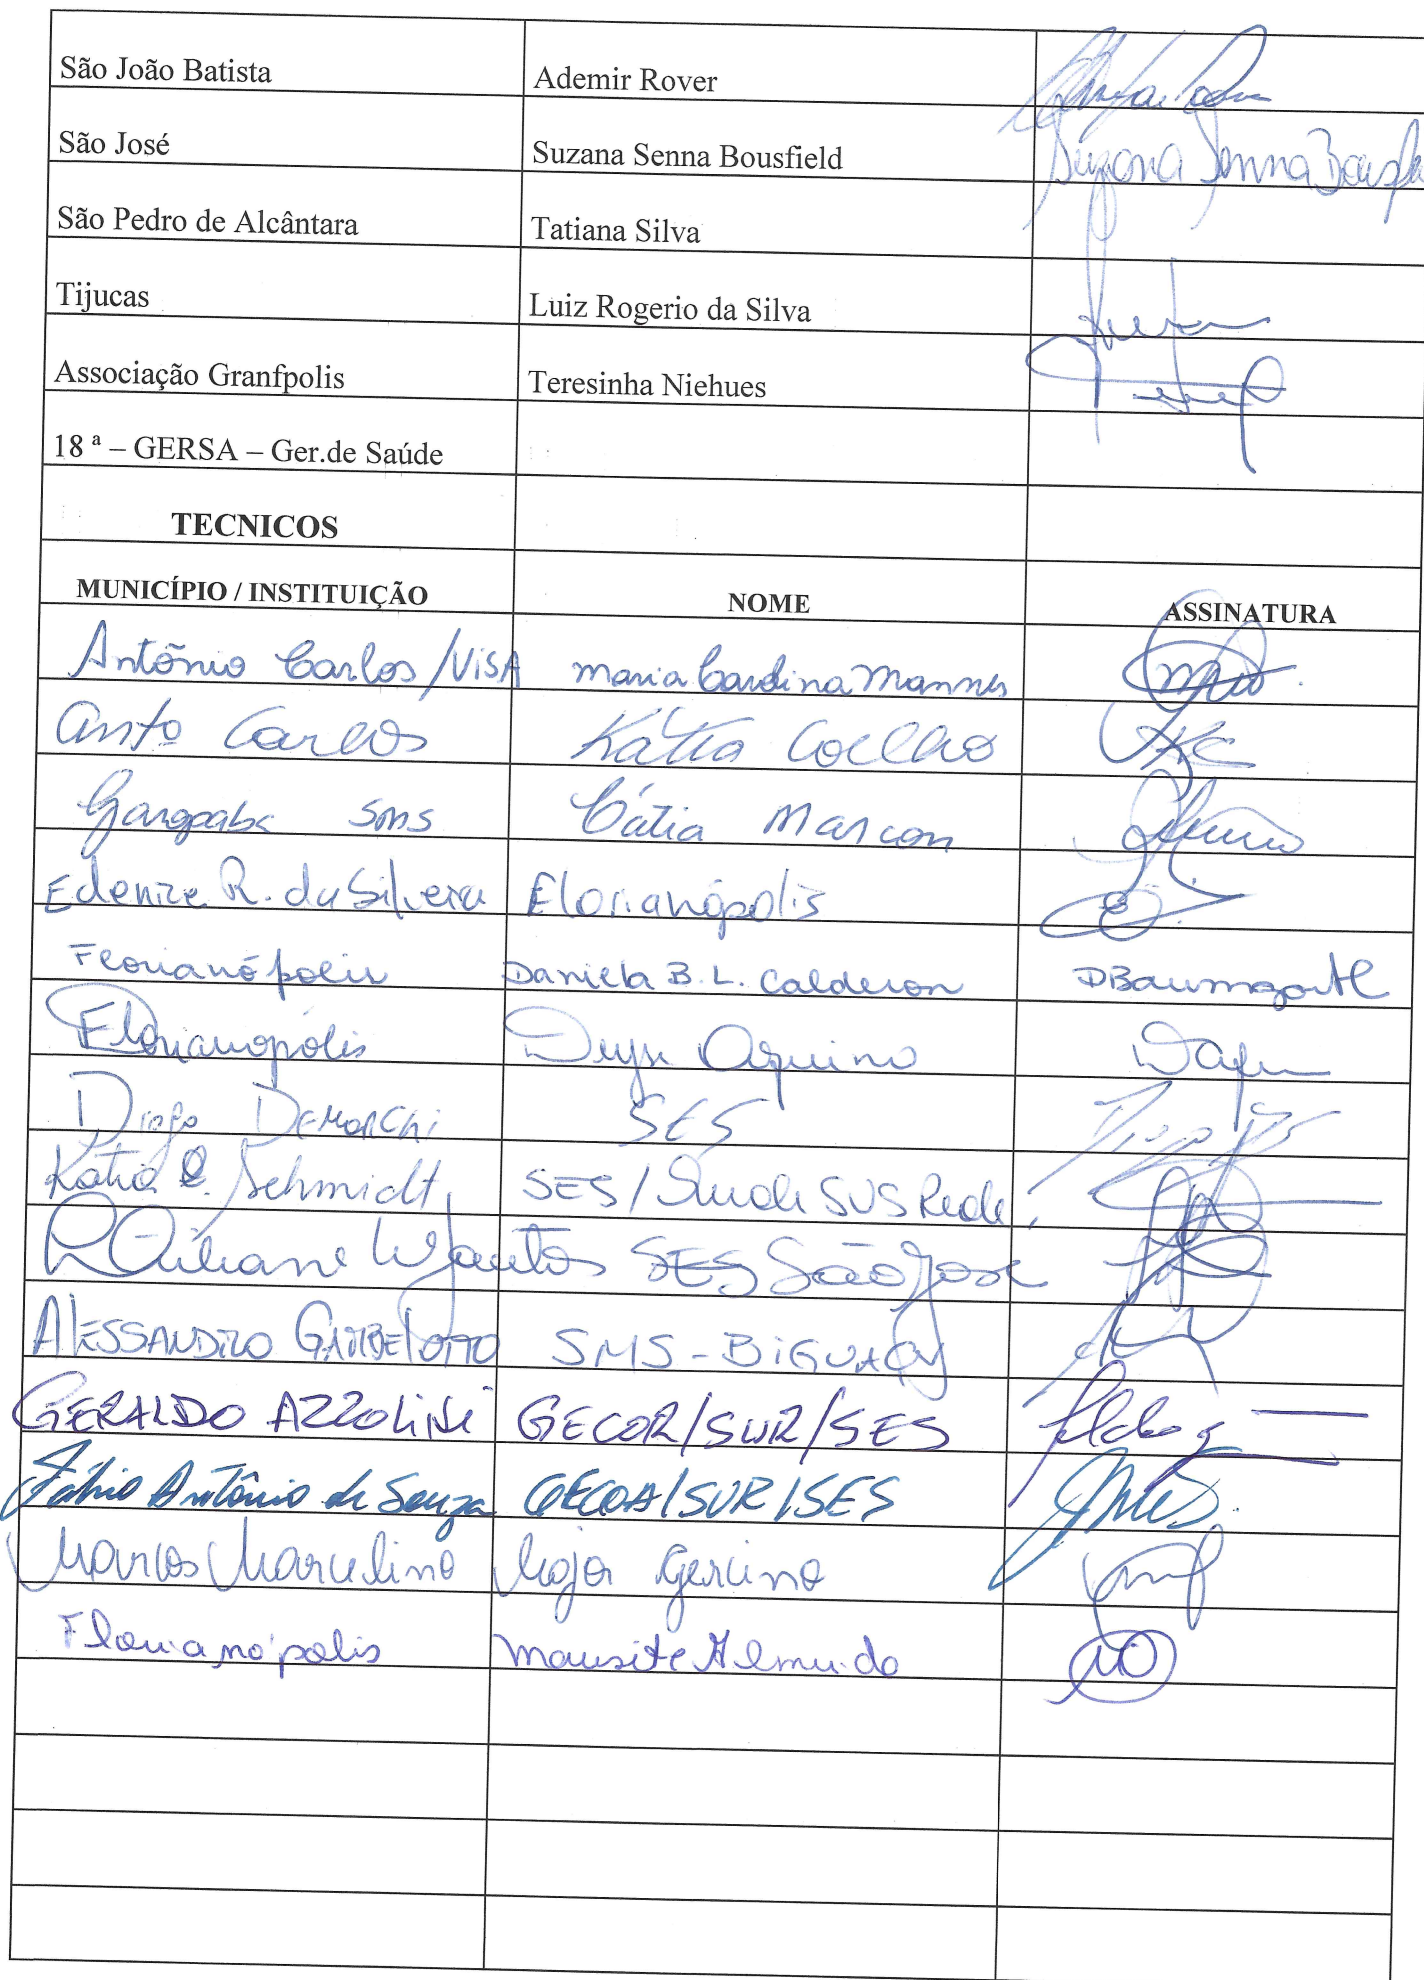 São João Batista Ademir Rover
São José Suzana Senna Bousfield Suzana Senna
São Pedro de Alcântara Tatiana Silva
Tijucas Luiz Rogerio da Silva
Associação Granfpolis Teresinha Niehues
18 ª – GERSA – Ger.de Saúde
TECNICOS
MUNICÍPIO / INSTITUIÇÃO NOME ASSINATURA
Antônio Carlos/VISA Maria Carolina Mannes
Anto Carlos Kátia Coelho
SMS Cátia Marcon
Edenice R. da Silveira Florianópolis
Florianópolis Daniela B. L. Calderon
Florianópolis Aquino
Diogo Demarchi SES
Katia Schmidt SES/ SUS Rede
SES São José
ALESSANDRO SMS-BIGUAÇU
GERALDO AZZOLINI GECOR/SUR/SES
Fábio Antônio de Souza GECOA/SUR/SES
Marcos Marcelino Major Gercino
Florianópolis